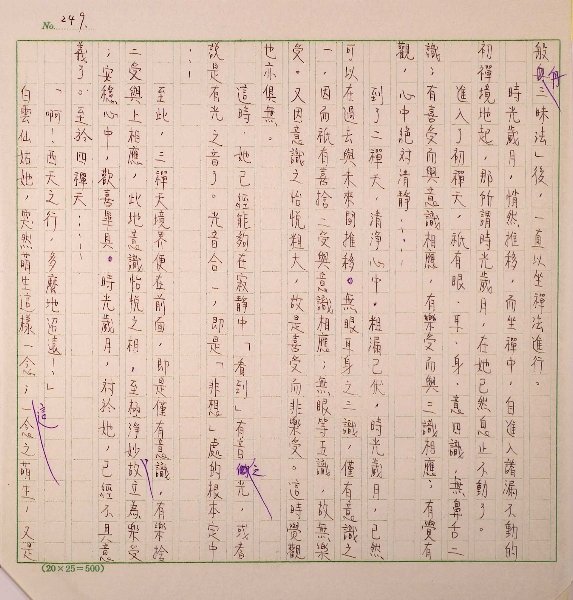 No. 249.
般舟三昧法」後，一直以坐禪法進行。
時光歲月，悄然推移，而坐禪中，自進入諸漏不動的
初禪境地起，那所謂時光歲月，在她已然息止不動了。
進入了初禪天，祇有眼、耳、身、意四識，無鼻舌二
識；有喜受而與意識相應，有樂受而與三識相應；有覺有
觀，心中絕對清靜……
到了二禪天，清淨心中，粗漏已伏，時光歲月，已然
可以在過去與未來間推移。無眼耳身之三識，僅有意識之
一，因而祇有喜捨二受與意識相應；無眼等五識，故無樂
受。又因意識之怡悅粗大，故是喜受而非樂受。這時覺觀
也亦俱無。
這時，她已經能夠在寂靜中「看到」有音之光，或者
說是有光之音了。光音合一，即是「非想」處的根本定中
……
至此，三禪天境界便在前面，即是僅有意識，有樂捨
二受與上相應，此地意識怡悅之相，至極淨妙故立為樂受
；安穩心中，歡喜畢具。時光歲月，対於她，已經不具意
義了。至於四禪天……
「啊！西天之行，多麼地留遠！」
白雲仙姑她，突然萌生這樣一念；一念之萌生，又是
(20×25=500)